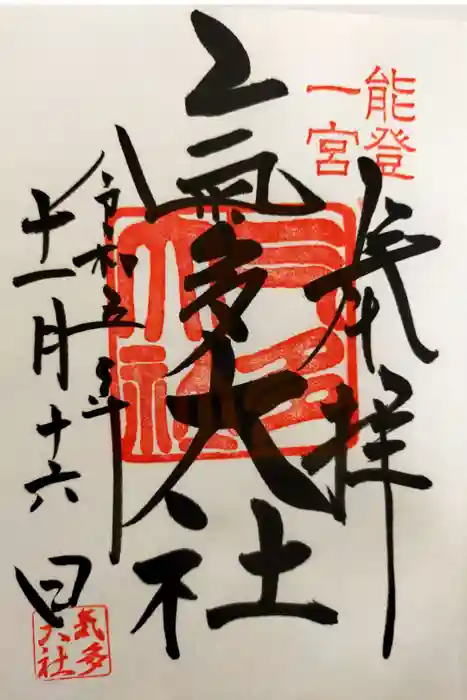 能登
一宮
奉拝
氣多大社
令和五年
十一月十六日
气多大社
氣多
大社